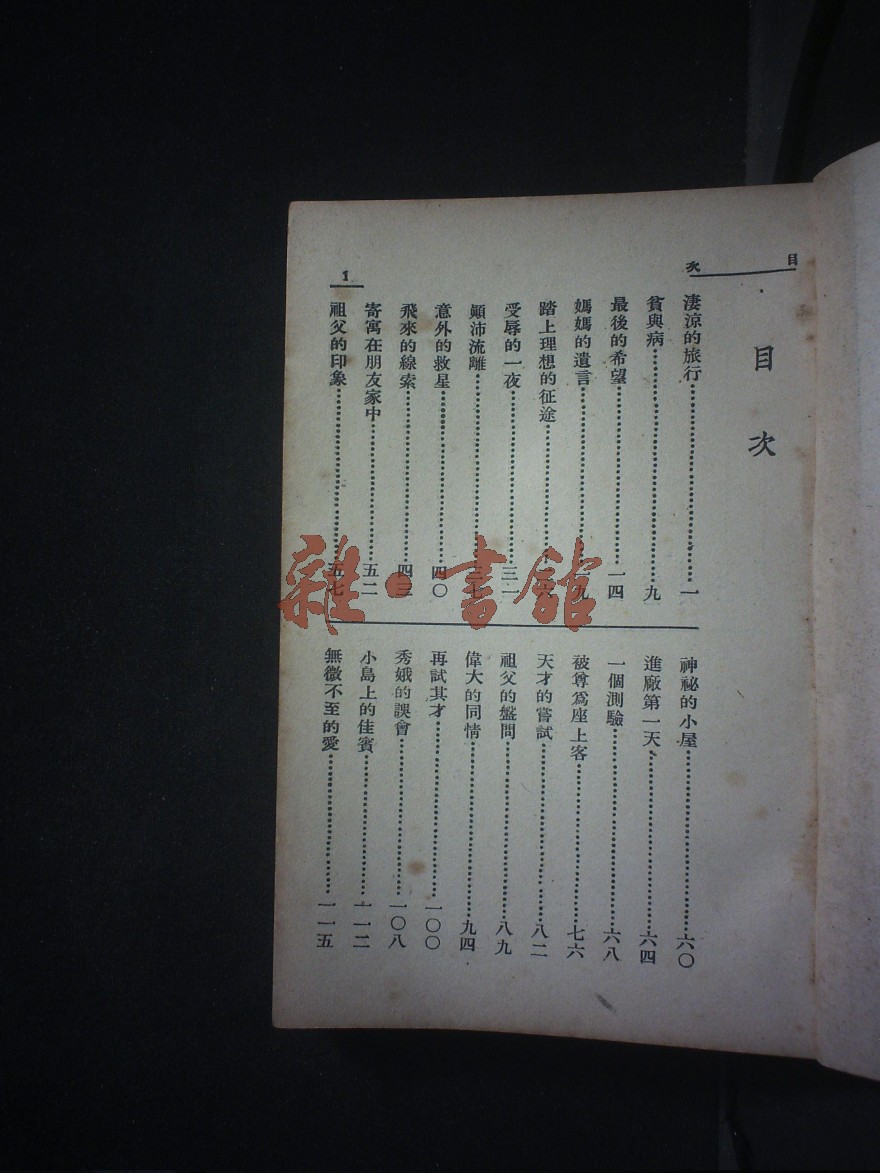 目次
1
目次
淒涼的旅行⋯⋯一
貧與病⋯⋯九
最後的希望⋯⋯一四
媽媽的遺言⋯⋯九
踏上理想的征途⋯⋯
受辱的一夜⋯⋯三一
顚沛流離⋯⋯三七
意外的救星⋯⋯四〇
飛來的線索⋯⋯四三
寄寓在朋友家中⋯⋯五二
祖父的印象⋯⋯五七
神祕的小屋⋯⋯六〇
進廠第一天⋯⋯六四
一個測驗⋯⋯六八
被尊爲座上客⋯⋯七六
天才的嘗試⋯⋯八二
祖父的盤問⋯⋯八九
偉大的同情⋯⋯九四
再試其才⋯⋯一〇〇
秀娥的誤會⋯⋯一〇八
小島上的佳賓⋯⋯一一二
無微不至的愛⋯⋯一一五
雜·書館